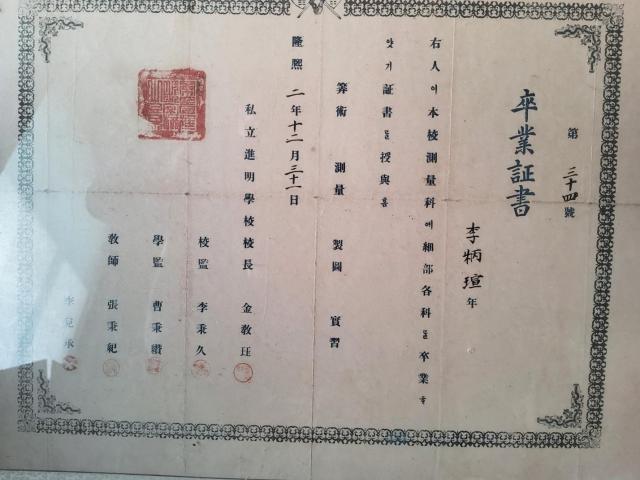 第三十四號
卒業証書
李炳瑄
年
右人이本校測量科에細部各科를卒業ᄒᆞ
앗기証書를授與홈
筭術 測量 製圖 實習
隆熙二年十二月三十一日
私立進明學校校長 金敎珏
校監 李秉久
學監 曹秉纘
敎師 張秉紀